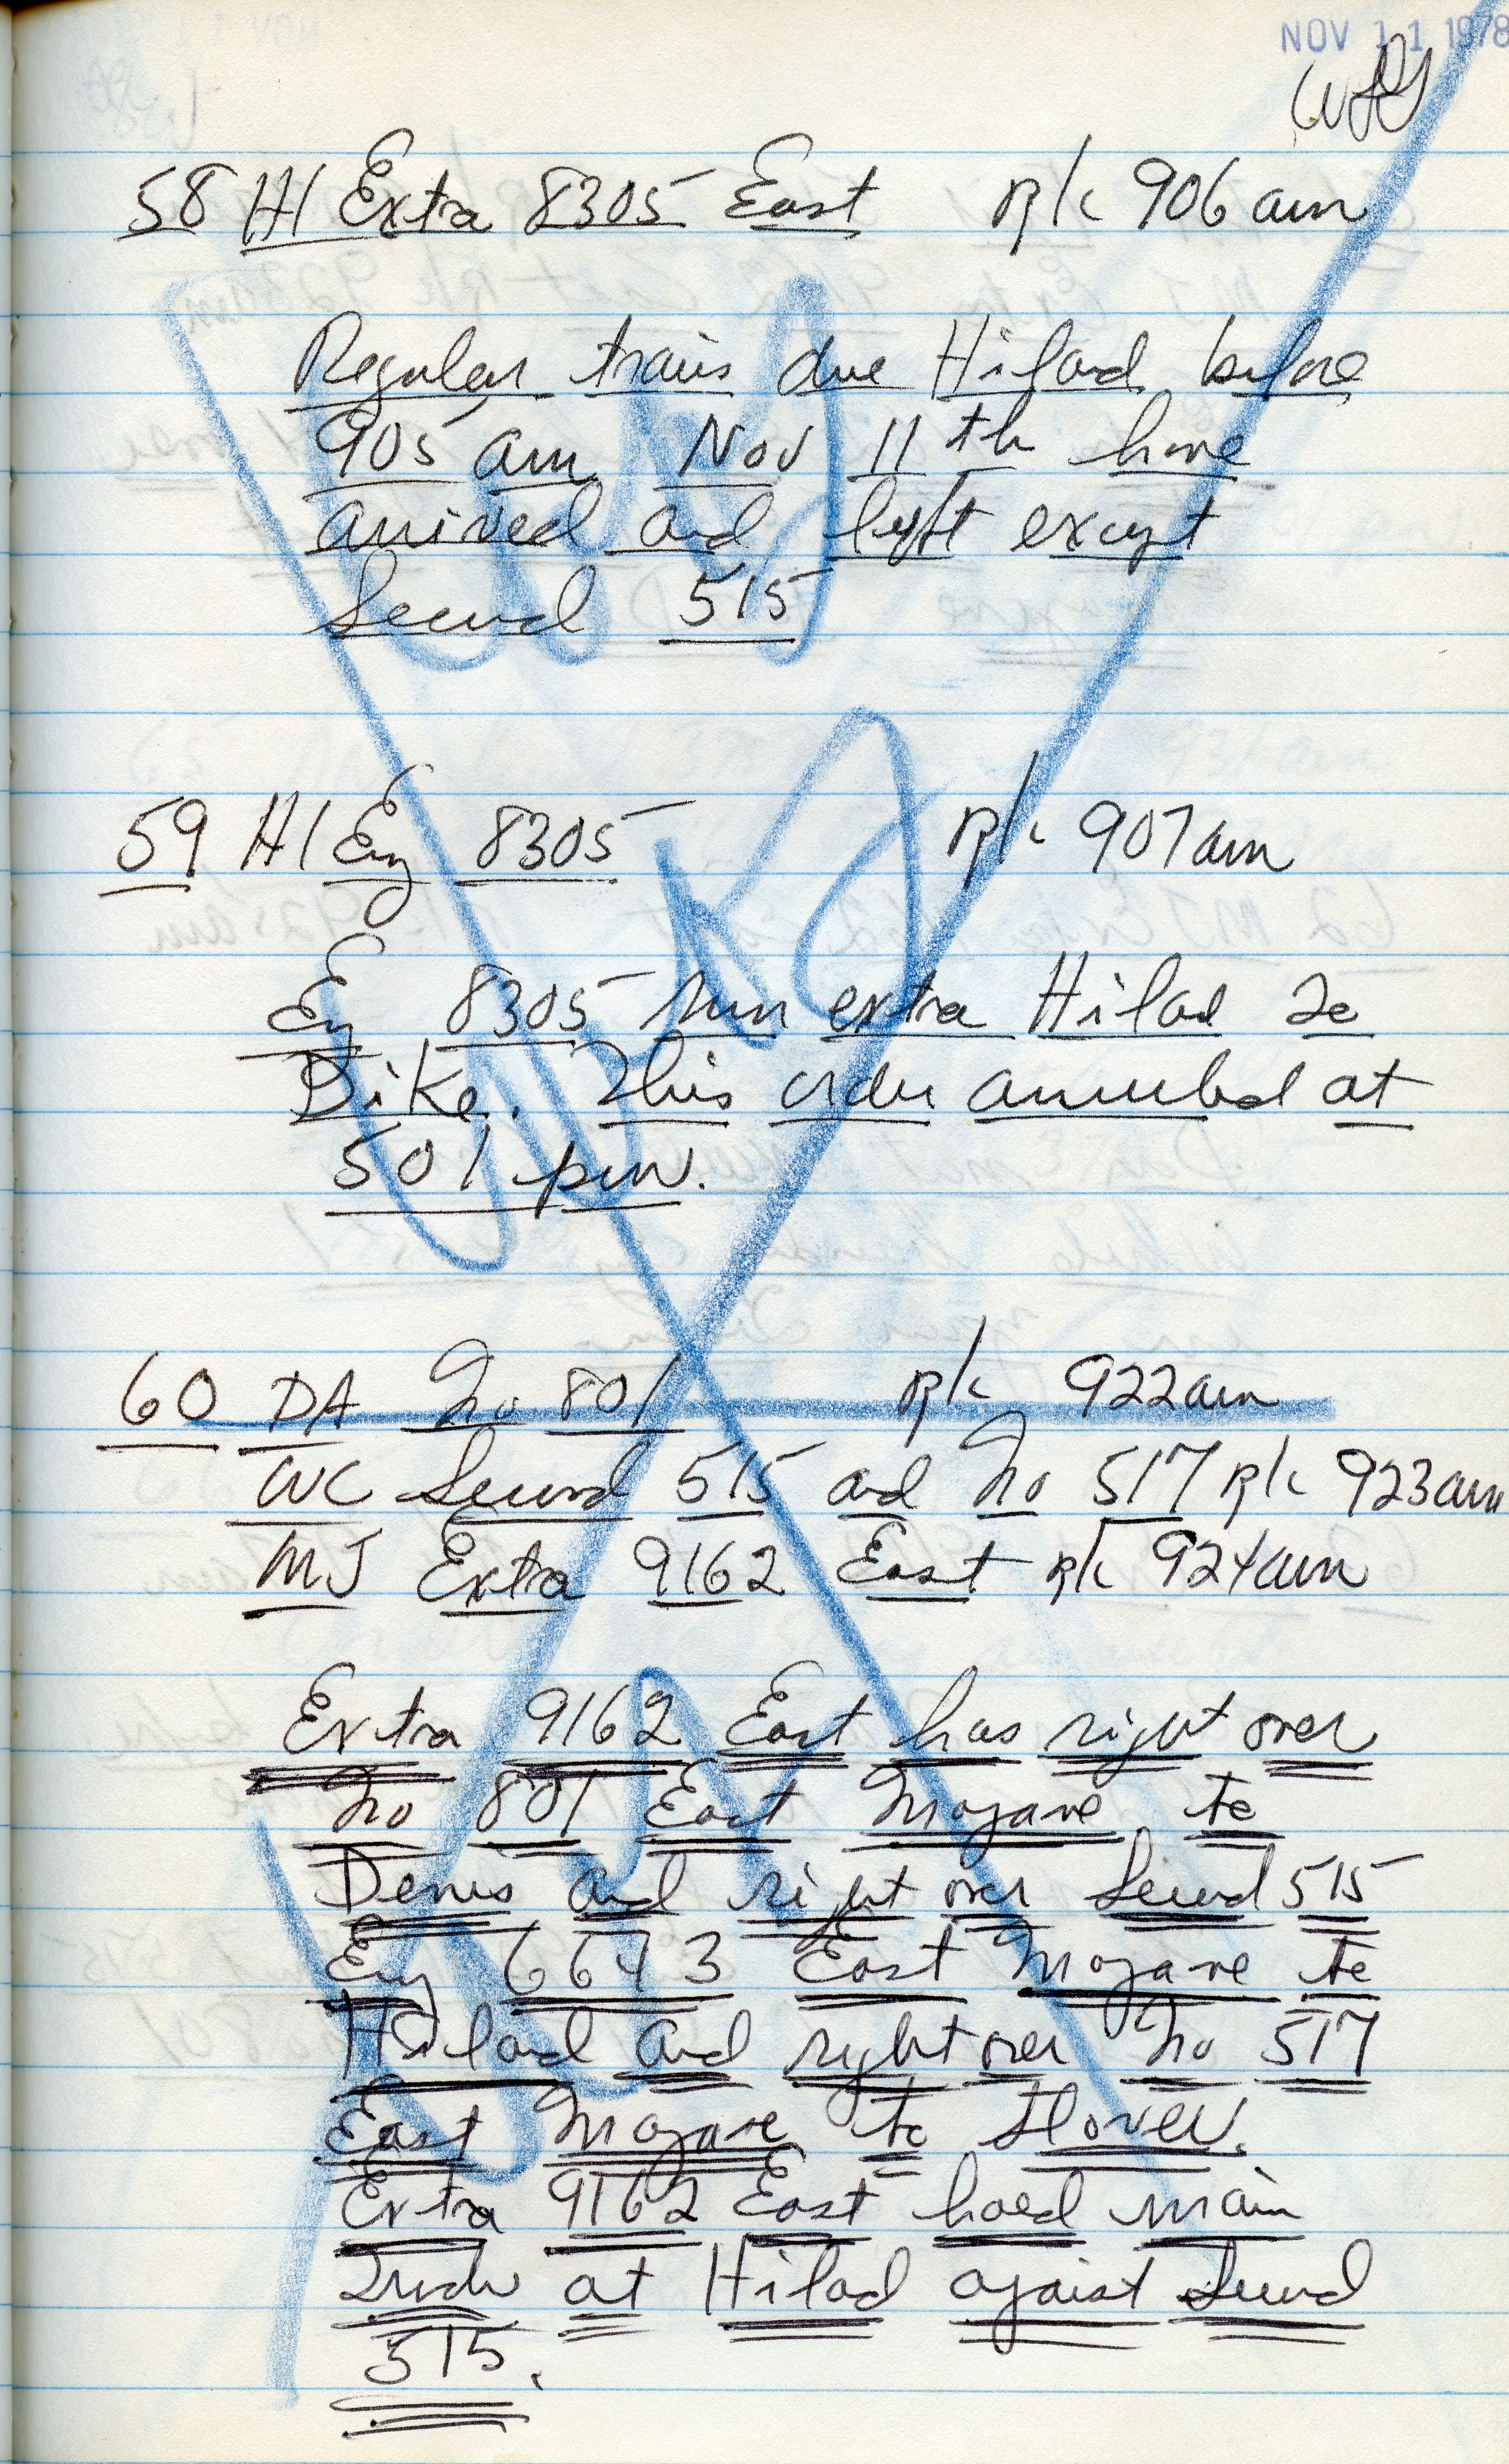 NOV 11 1978
58 HI Extra 8305 East R/c 906 am
Regular trains due Hiland before
905 am Nov 11th have
arrived and left except
Second 515
59 HI Eng 8305 R/c 907 am
Eng 8305 run extra Hiland to
Dike. This order annulled at
501 pm.
60 DA No 801 R/c 922 am
WC Second 515 and No 517 R/c 923 am
MJ Extra 9162 East R/c 924 am
Extra 9162 East has right over
No 801 East Mojave to
Denis and right over Second 515
Eng 6643 East Mojave to
Hiland and right over No 517
East Mojave to Slover.
Extra 9162 East hold main
Track at Hiland against Second
515.